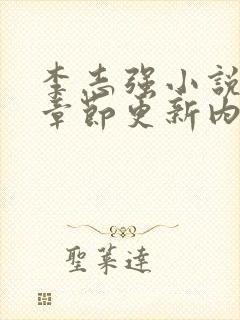 李志强小說
章節更新内
聖萊達